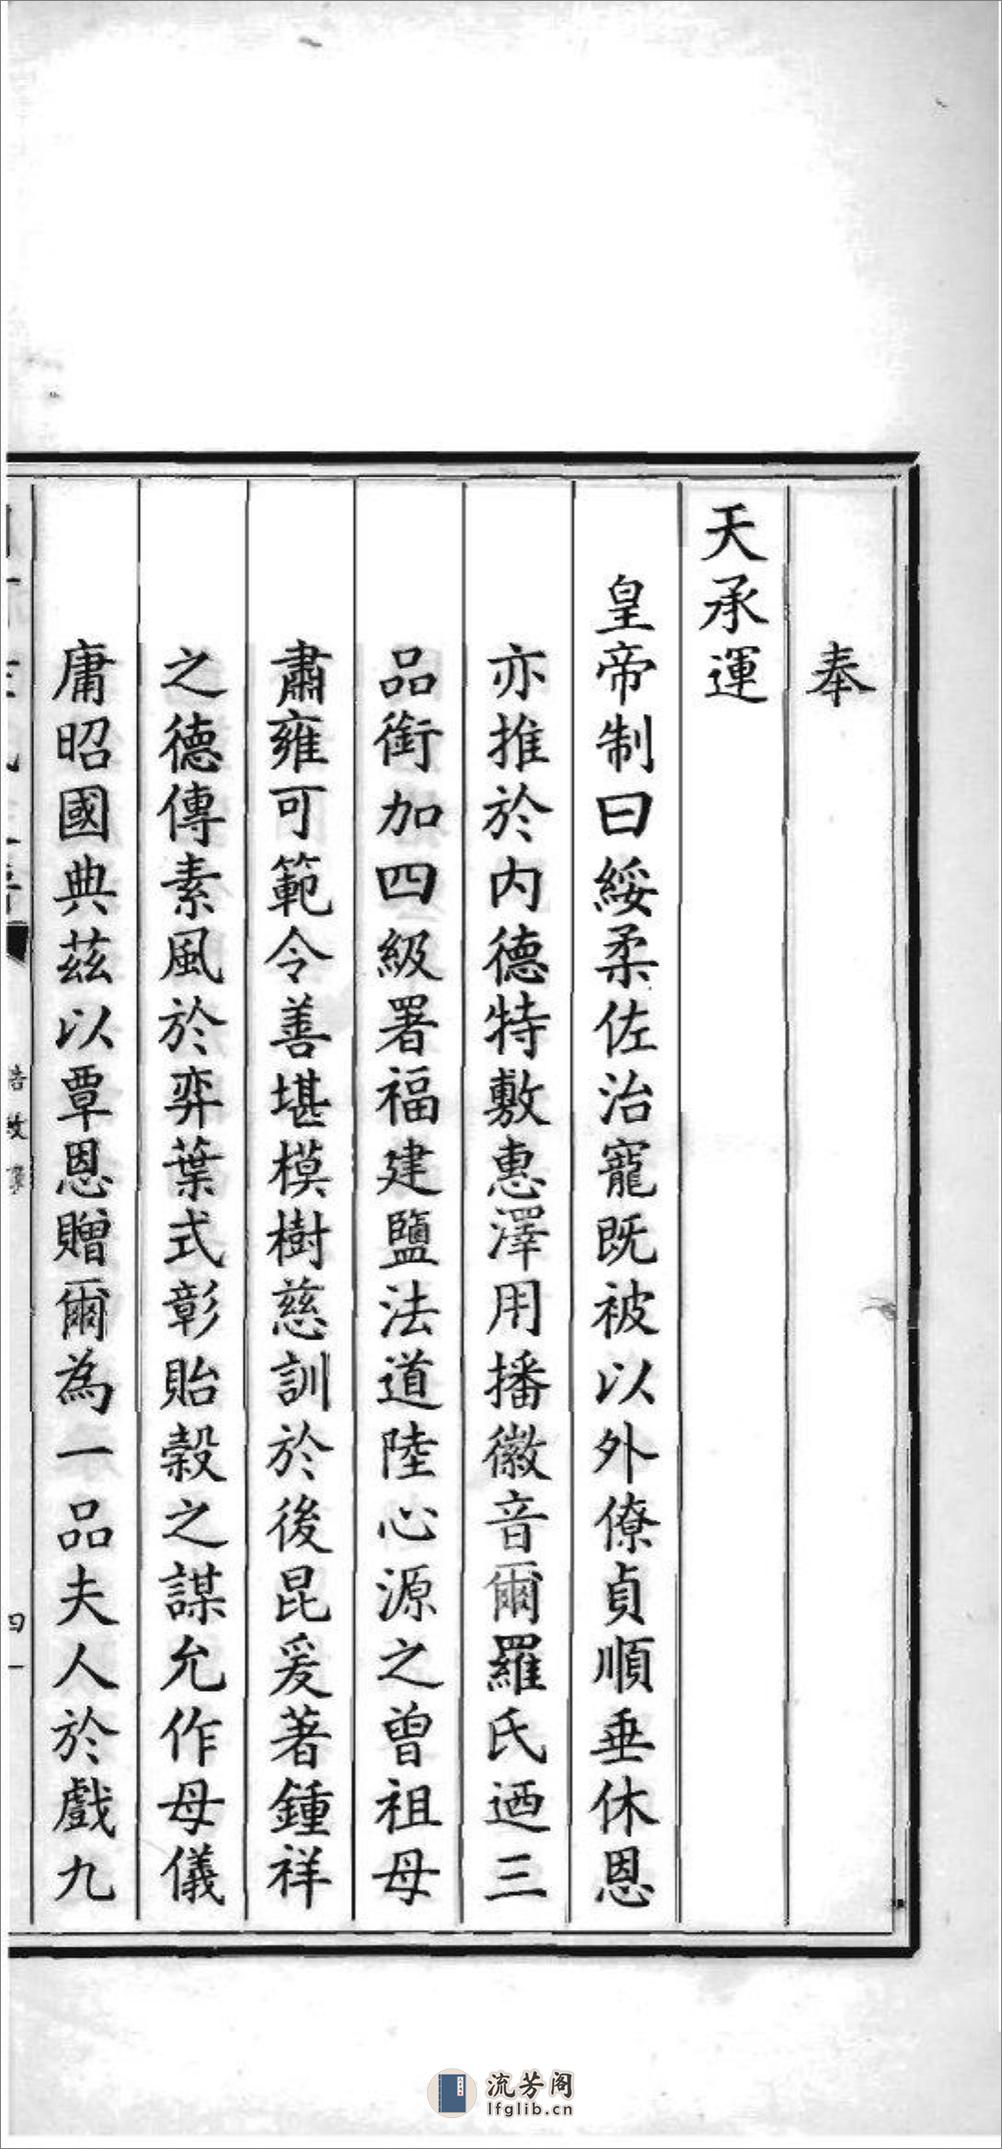 奉
天承運
皇帝制曰綏柔佐治寵既被以外僚貞順垂休恩
亦推於内德特敷惠澤用播徽音爾羅氏迺三
品銜加四級署福建鹽法道陸心源之曾祖母
肅雍可範令善堪模樹慈訓於後昆爰著鍾祥
之德傳素風於弈葉式彰貽穀之謀允作母儀
庸昭國典茲以覃恩贈爾為一品夫人於戲九
四一
流芳阁
lfglib.cn